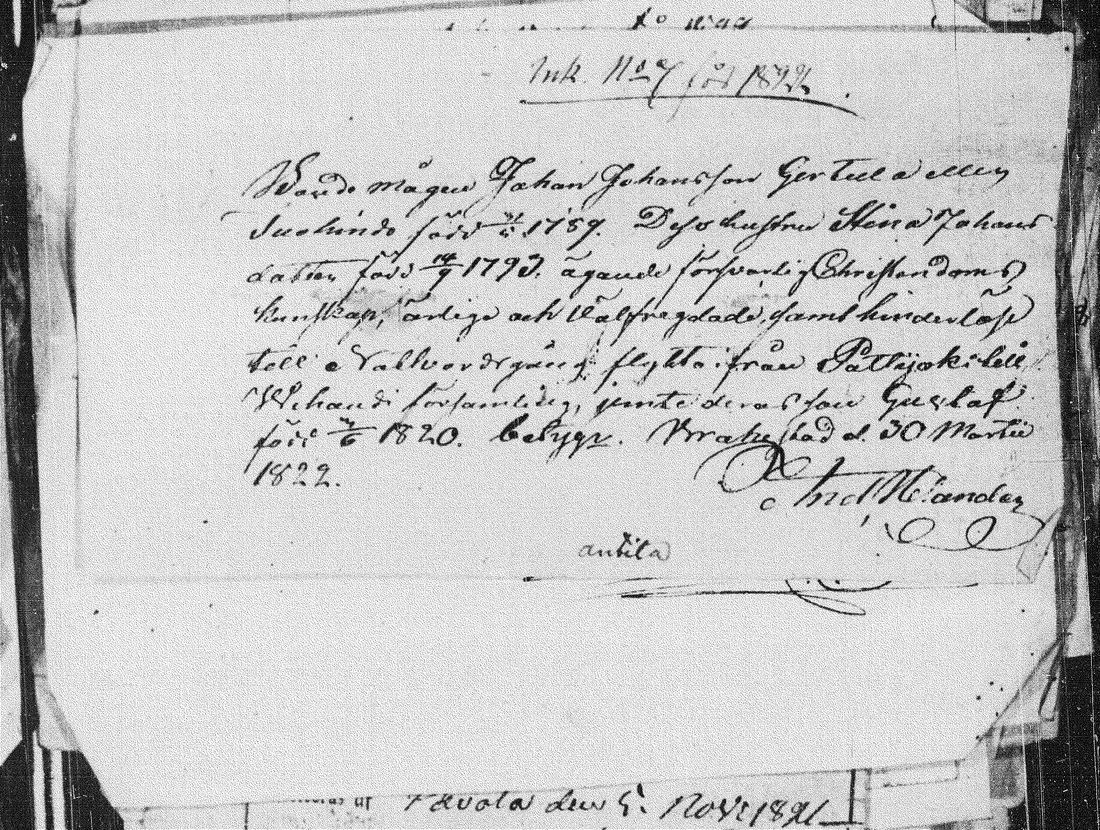 Ink. No 7 för 1822.
Bonde mågen Johan Johansson Gertula eller
Suohindo född 1789. Dess hustru Stina Johans
dotter född 14/9 1793. ägande försvarlig Christendoms
kunskap, ärlige och Välfregdade, samt hinderlöse
till Nattvardsgång, flytta ifrån Pattijoki till
Wihandi församling, jemte deras son Gustaf
född 1820. betygr. Brahestad d. 30 Martii
1822.
And. Helander
antita
den 5. Nov. 1821